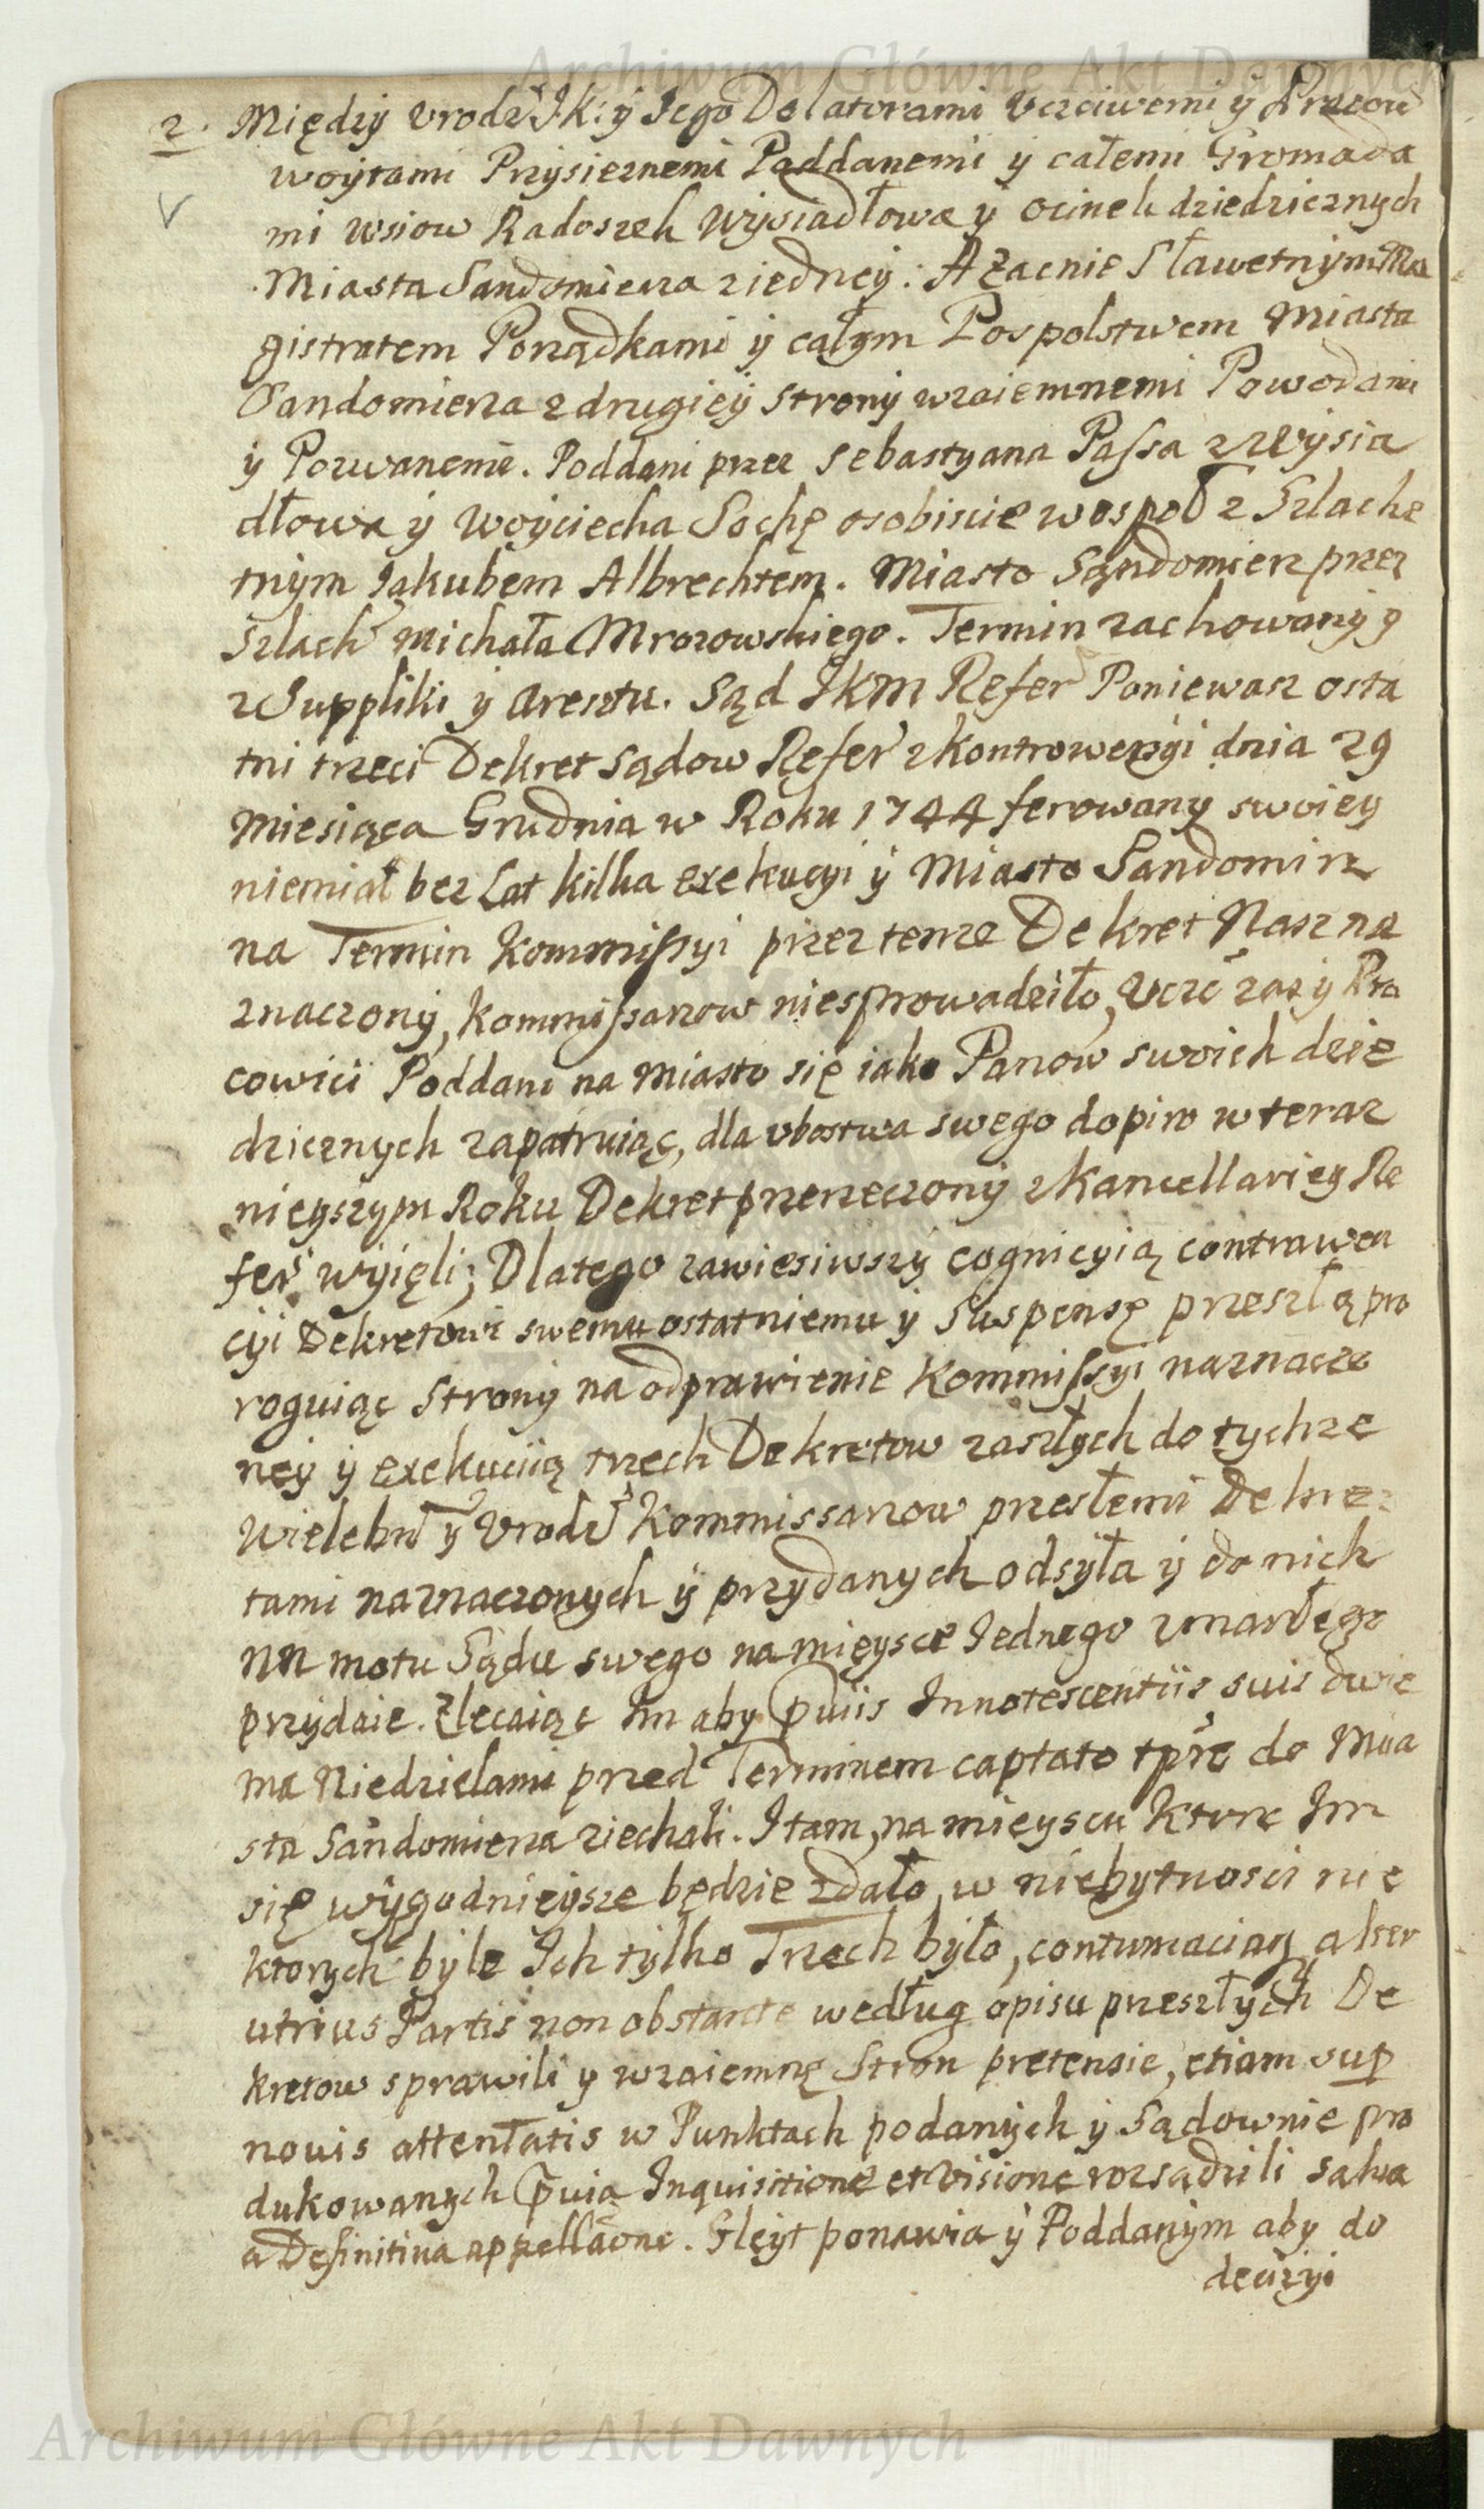 Archiwum Główne Akt Dawnych
2. Między Urodz Jk: y Jego Delatorami Uczciwemi y Pracow
woytami Przysieznemi Poddanemi y całemi Gromada
mi wsiow Radoszek Wysiadłowa y Ocinek dziedzicznych
Miasta Sandomierza ziedney: A Zacnie Sławetnym Ma
gistratem Porządkami y całym Pospolstwem Miasta
Sandomierza z drugiey strony wzaiemnemi Powodami
y Pozwanemi. Poddani przez Sebastyana Passa z Wysia
dłowa y Woyciecha Sochę osobiscie wospoł z Szlache
tnym Jakubem Albrechtem. Miasto Sandomierz przez
Szlach Michała Mrozowskiego. Termin zachowany g
z Suppliki y Aresztu. Sąd JKM Refer Poniewasz osta
tni trzeci Dekret Sądow Refer z kontrowersyi dnia 29
Miesiąca Grudnia w Roku 1744 ferowany swoiey
niemiał bez Lat kilka exekucyi y Miasto Sandomirz
na Termin Kommissyi przez tenze Dekret Nasz na
znaczony, Kommissarzow niesprowadziło, Uczc zas y Pra
cowici Poddani na Miasto się iako Panow swoich dzie
dzicznych zapatruiąc, dla ubostwa swego dopiro w teraz
nieyszym Roku Dekret przerzeczony z Kancellaryi Re
fer wyięli; Dlatego zawiesiwszy cognicyią contrawen
cyi Dekretowi swemu ostatniemu y Suspensę przeszłą pro
roguiąc Strony na odprawienie Kommissyi naznaczo
ney y exekuciią trzech Dekretow zaszłych do tychze
Wielebn y Urodz Kommissarzow przesłemi Dekre
tami naznaczonych y przydanych odsyła y do nich
NN motu Sądu swego na mieysce Jednego zmarłego
przydaie. Zlecaiąc Im aby pviis Innotescentiis suis dwie
ma Niedzielami przed Terminem captato tpre do Mia
sta Sandomierza ziechali. I tam, na mieyscu ktore Im
się wygodnieysze będzie zdało, w niebytnosci nie
ktorych byle Ich tylko Trzech było, contumacią alter
utrius Partis non obstante według opisu przeszłych De
kretow sprawili y wzaiemnę Stron pretensie, etiam sup
novis attentatis w Punktach podanych y Sądownie pro
dukowanych pvia Inquisitione et Visione rozsądzili salva
a Definitiva appellaone. Gleyt ponawia y Poddanym aby do
decizyi
Archiwum Główne Akt Dawnych